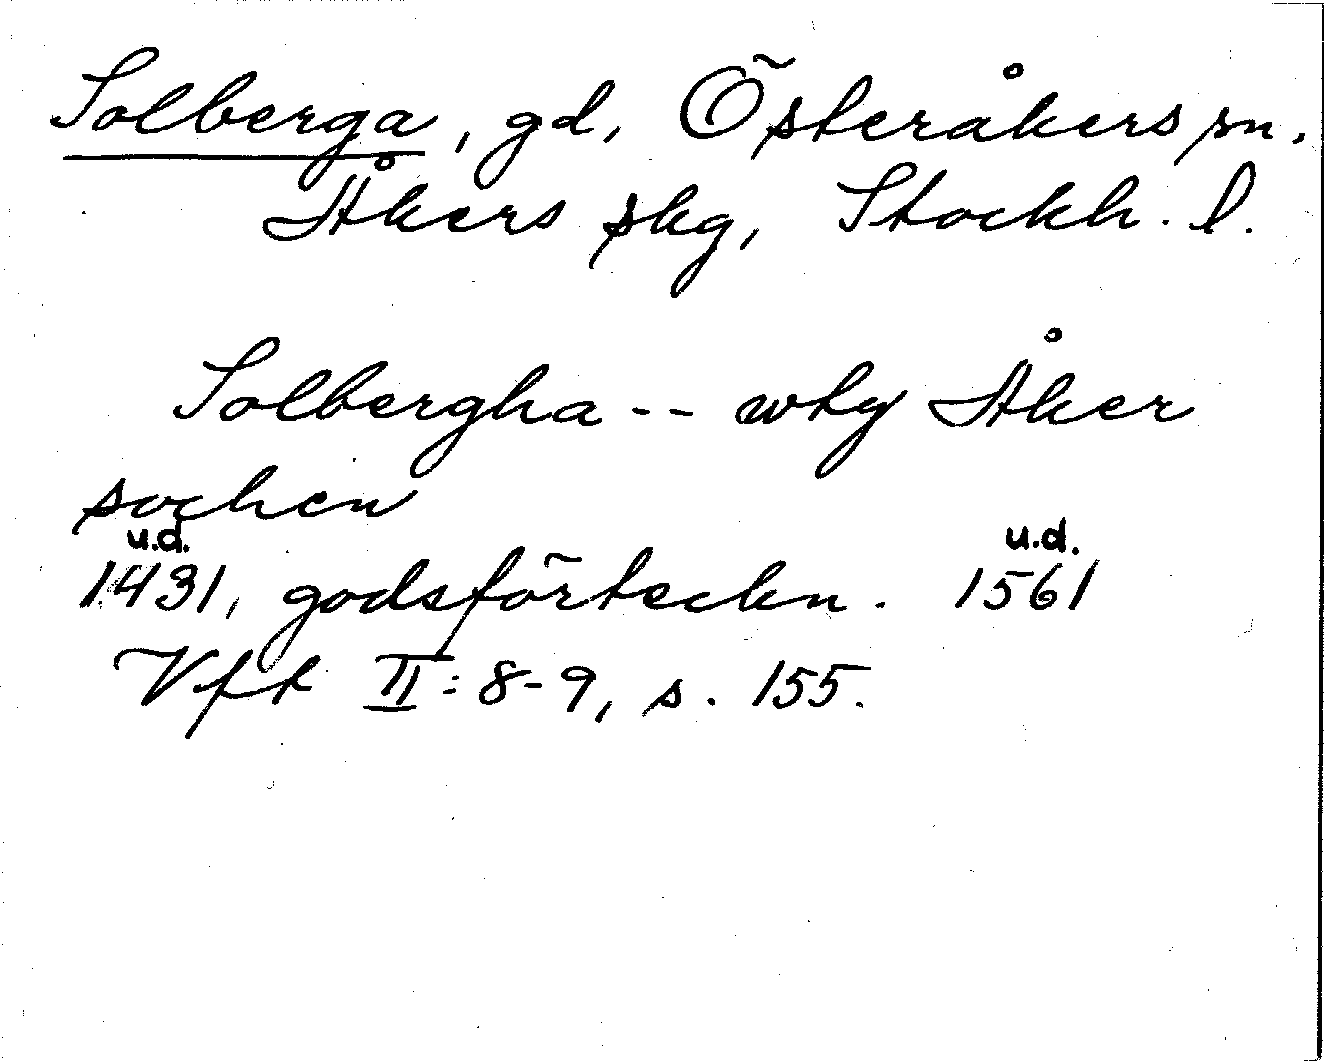 Solberga, gd, Österåkers sn.
Åkers skg, Stockh. l.
Solbergha -- wty Åker
sochen
u.d. u.d.
1431, godsförteckn. 1561
Vft II: 8-9, s. 155.